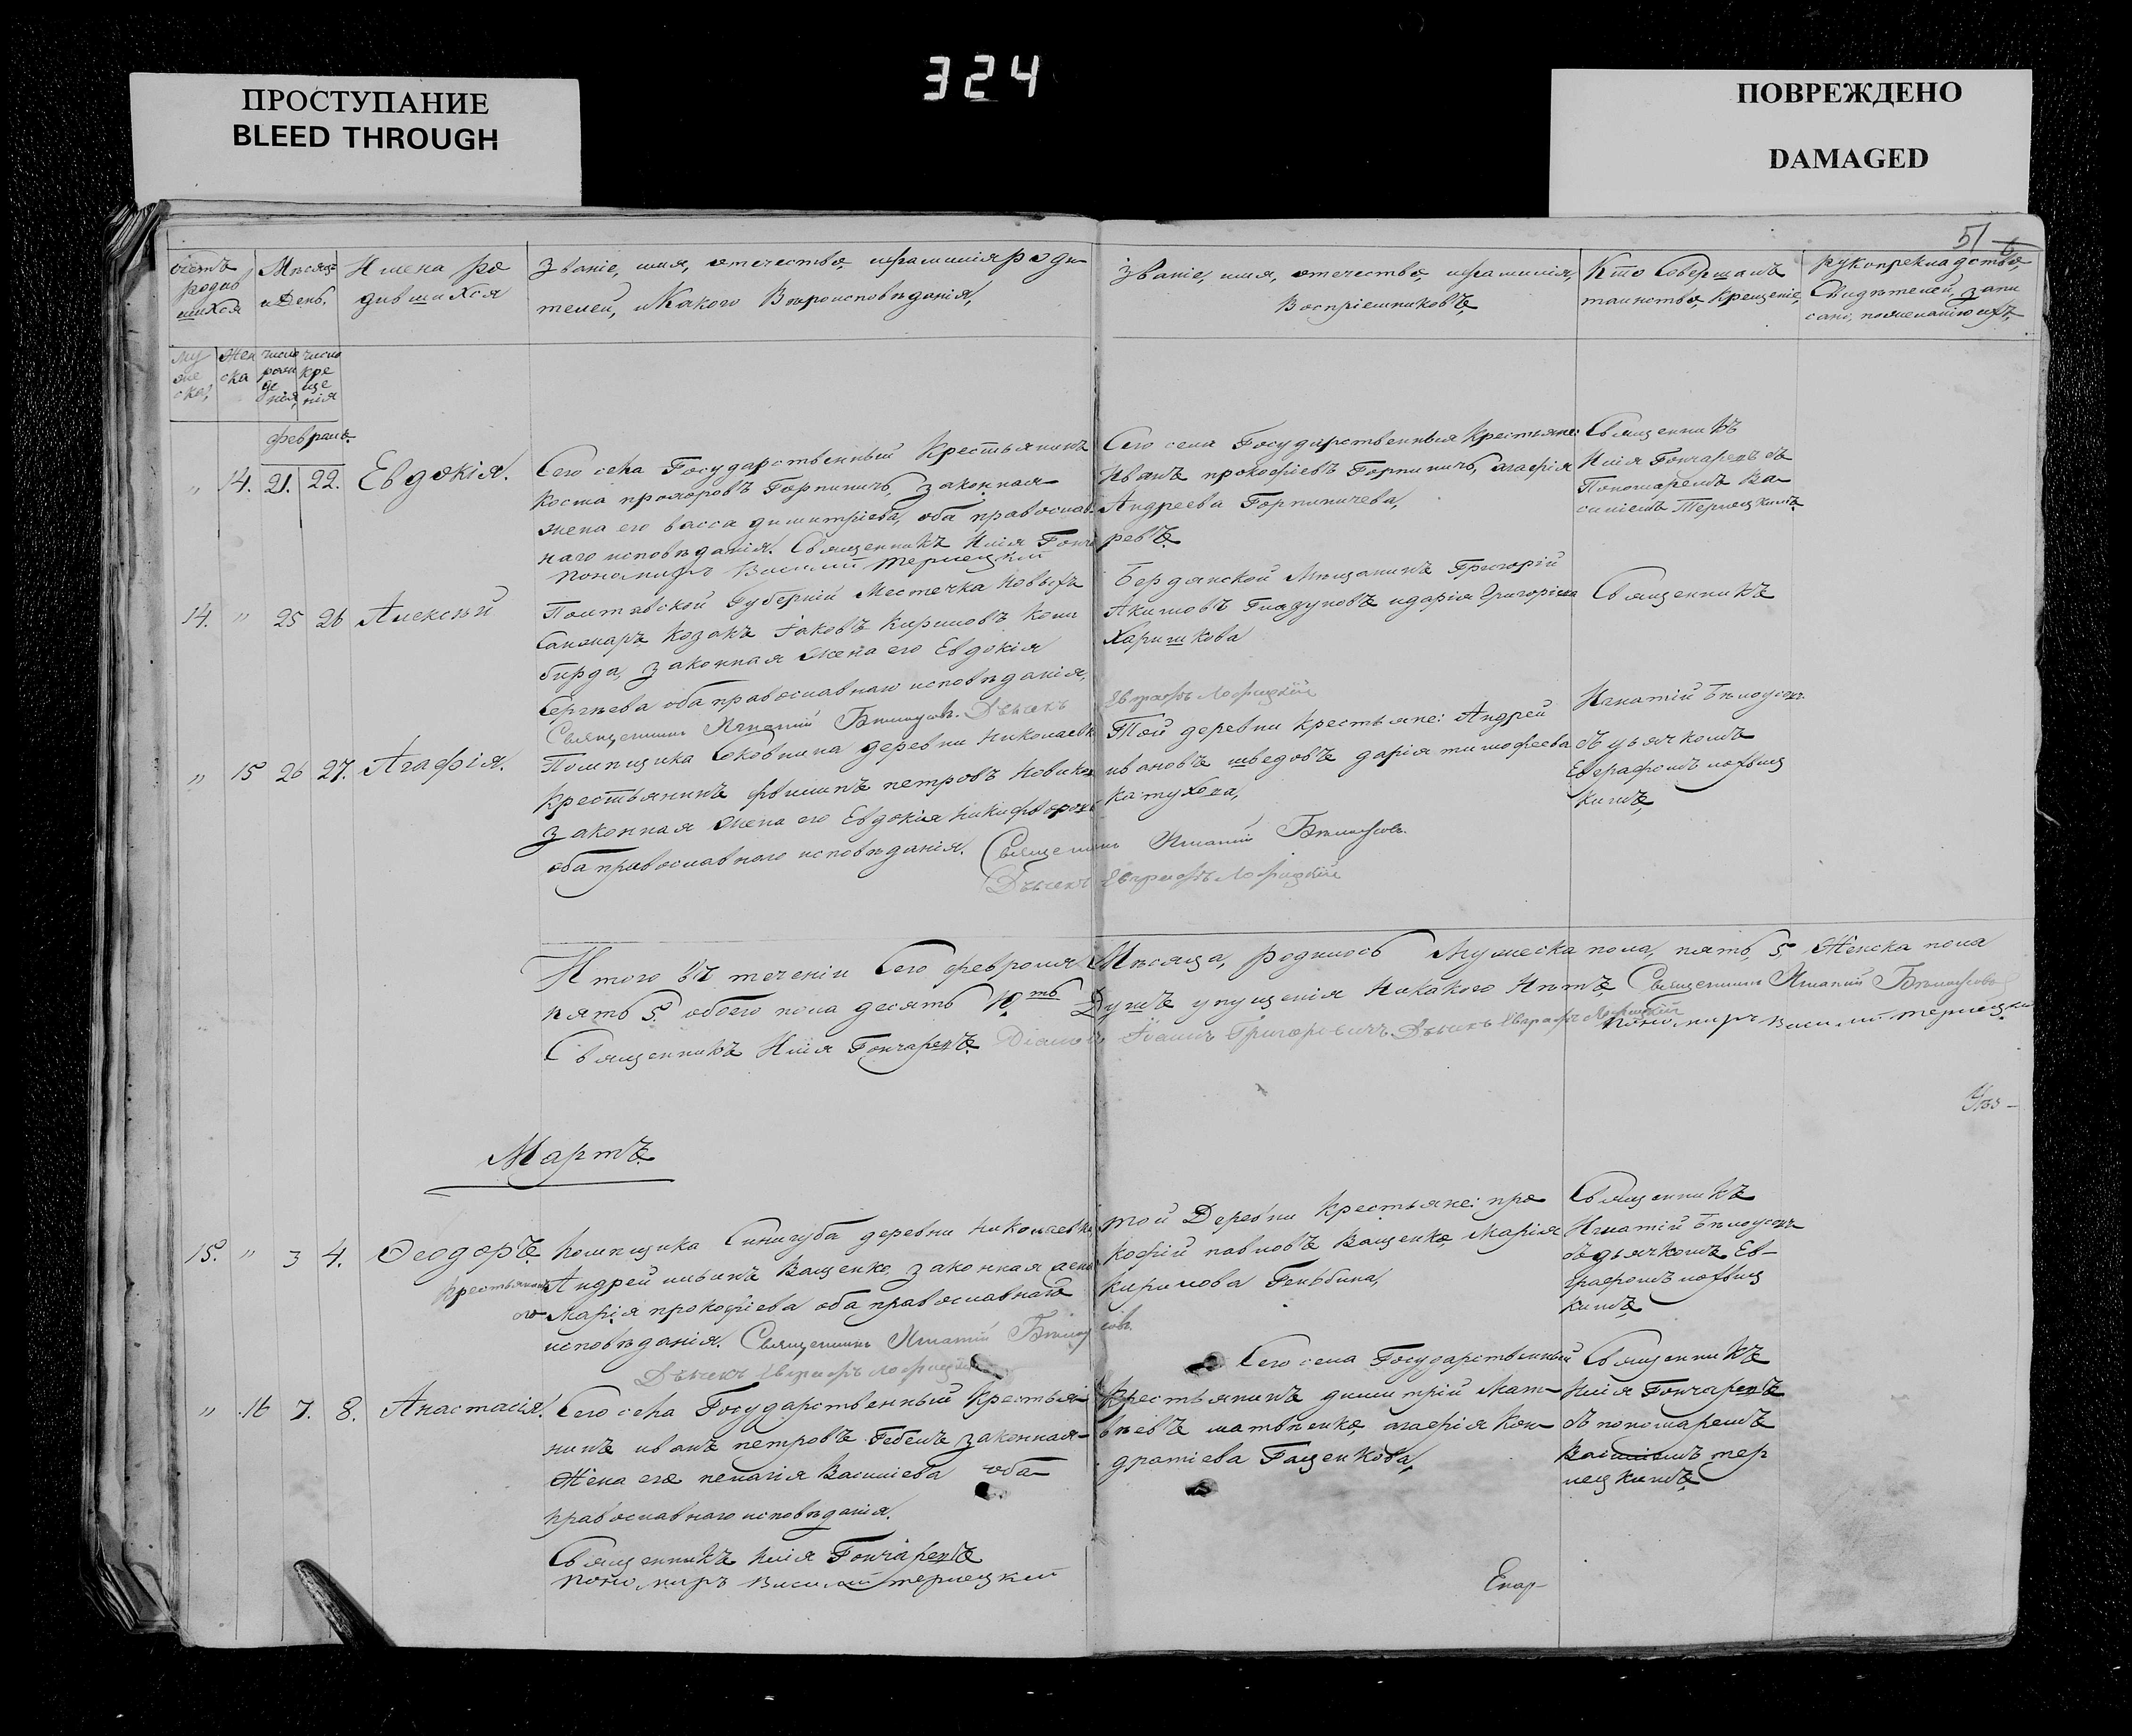 324
ПРОСТУПАНИЕ
BLEED THROUGH
ПОВРЕЖДЕНО
DAMAGED
51
счетъ родив шихся
Мѣсяцъ и День,
Имена ро дившихся
Званіе, имя, отечество, ифамиліи роди
телей, иКакого Вѣроисповѣданія,
Званіе, имя, отечество, ифамилія,
Воспріемниковъ,
Кто Совершалъ
таинство, крещеніе,
рукоприкладство,
Свидѣтелей, запи
сано, пожеланію ихъ,
му же ска,
жен ска
число рож де нія,
число кре ще нія
февраль
" 14. 21. 22. Евдокія.
Сего села Государственный Крестьянинъ
Косма прохоровъ Горпиничъ, законная
жена его васса димитріева, оба православ
наго исповѣданія. Священникъ Илія Гонча
ревъ.
Пономарь Василий Терлецкий
Сего села Государственныя Крестьяне:
Иванъ прокофіевъ Горпиничъ, агафія
Андреева Горпиничева,
Священникъ
Илія Гончаревъ съ
Пономаремъ Ва-
силіемъ Терлецкимъ
14. " 25 26 Алексѣй
Полтавской Губерніи Местечка Новыхъ
Санжаръ Козакъ Іаковъ Кириловъ Коли
бирда, законная жена его Евдокія
Сергѣева оба православнаго исповѣданія,
Священникъ Игнатий Бѣлоусовъ. Дьячекъ
Евграфъ Лофицкій
Бердянской Мѣщанинъ Григорій
Акимовъ Гладуновъ идарія Григоріева
Харишкова
Священникъ
Игнатій Бѣлоусовъ
съ дьячкомъ
Евграфомъ лофиц
кимъ,
" 15 26 27. Агафія.
Помѣщика Соковнина деревни Николаевки
крестьянинъ филипъ петровъ Новиков
законная жена его Евдокія никифорова
оба православнаго исповѣданія.
Той деревни крестьяне: Андрей
ивановъ шведовъ дарія тимофеева
катухова,
Священникъ Игнатий Бѣлоусовъ.
Дьячекъ Евграфъ Лофицкій
Итого въ теченіи Сего февраля Мѣсяца, родилось Мужеска пола, пять, 5. Женска пола
пять 5. обоего пола десять 10.ть Душъ упущенія Никакого Нѣтъ, Священникъ Игнатий Бѣлоусовъ
Священникъ Илія Гончаревъ. Діаконъ Іоаннъ Григоровичъ. Дьячекъ Евграфъ Лофицкій
Пономарь Василий Терлецкий
Мартъ.
15. " 3 4. Ѳеодоръ.
Помѣщика Синигуба деревни Николаевки,
крестьянинъ Андрей ильинъ Ващенко, законная жена
его Марія прокофіева оба православнаго
исповѣданія. Священникъ Игнатий Бѣлоу
совъ.
Дьячекъ Евграфъ Лофицкій
той Деревни крестьяне: про
кофій павловъ Ващенко, Марія
кирилова Гельбина,
Священникъ
Игнатій Бѣлоусовъ
съ дьячкомъ Ев-
графомъ лофиц
кимъ,
" 16 7. 8. Анастасія.
Сего села Государственный крестья
нинъ иванъ петровъ Гебель законная-
Жена его пелагія Василіева оба
православнаго исповѣданія.
Священникъ Илія Гончаревъ
Пономарь Василий Терлецкий
Сего села Государственный
Крестьянинъ димитрій Мат-
вѣевъ матвѣенко, агафія Кон-
дратіева Гащенкова,
Священникъ
Илія Гончаревъ
съ пономаремъ
Василіемъ тер
лецкимъ